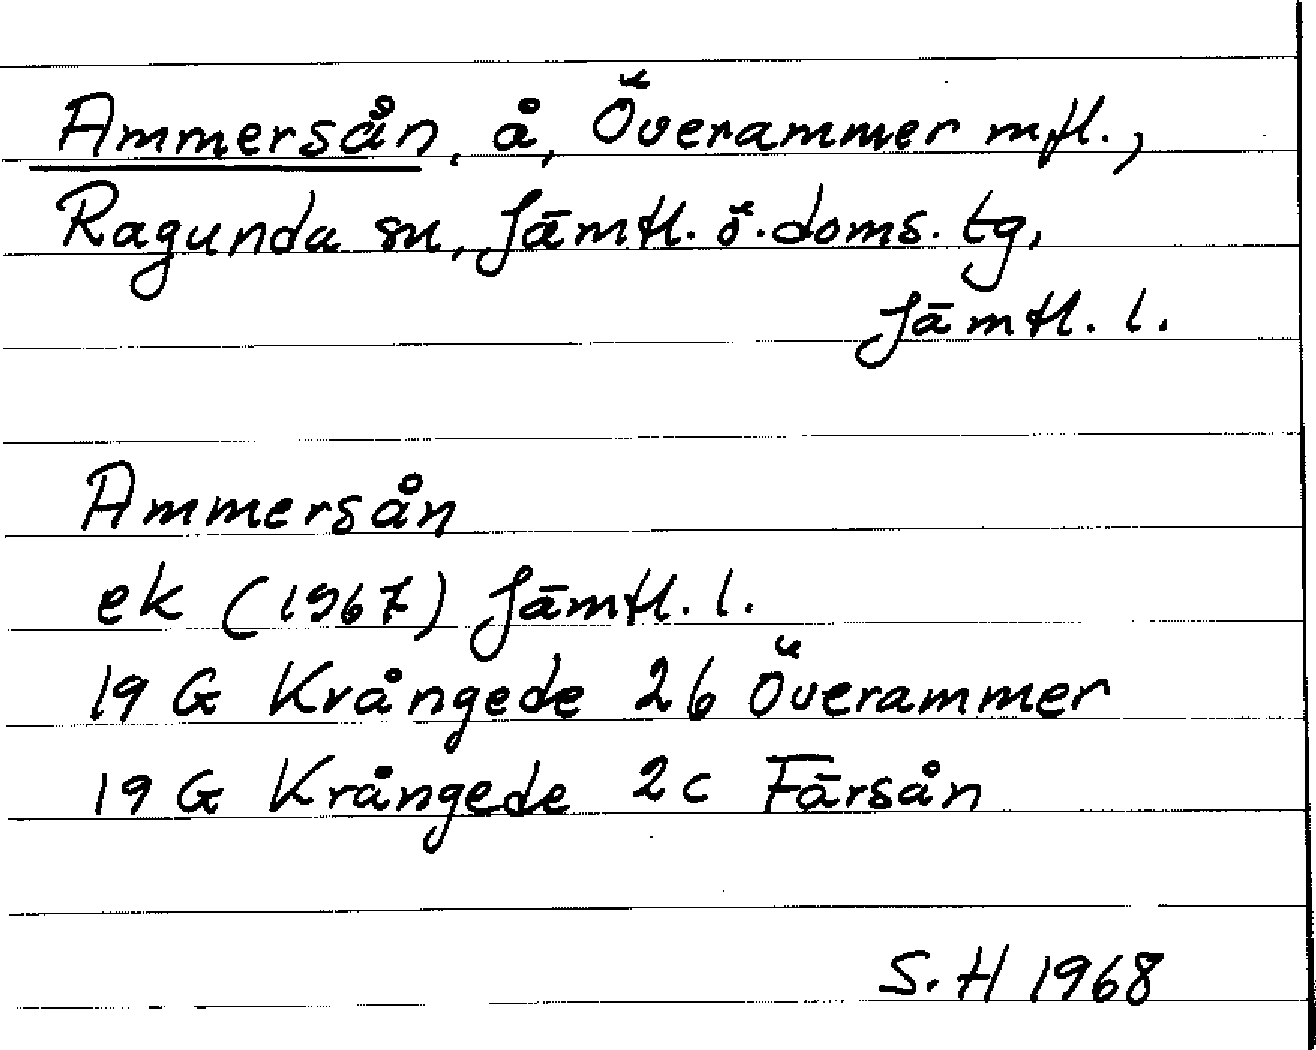 Ammersån, å, Överammer mfl.,
Ragunda sn, Jämtl. ö. doms. tg,
Jämtl. l.
Ammersån
ek (1967) Jämtl. l.
19 G Krångede 2b Överammer
19 G Krångede 2c Färsån
S. H 1968